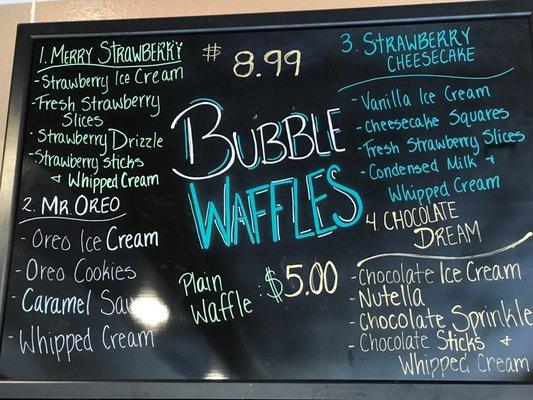 1. Merry Strawberry
- Strawberry Ice Cream
- Fresh Strawberry
Slices
- Strawberry Drizzle
- Strawberry Sticks
& Whipped Cream
2. Mr. Oreo
- Oreo Ice Cream
- Oreo Cookies
- Caramel
- Whipped Cream
$ 8.99
Bubble
Waffles
Plain
Waffle : $5.00
3. Strawberry
Cheesecake
- Vanilla Ice Cream
- Cheesecake Squares
- Fresh Strawberry Slices
- Condensed Milk &
Whipped Cream
4. Chocolate
Dream
- Chocolate Ice Cream
- Nutella
- Chocolate Sprinkle
- Chocolate Sticks &
Whipped Cream